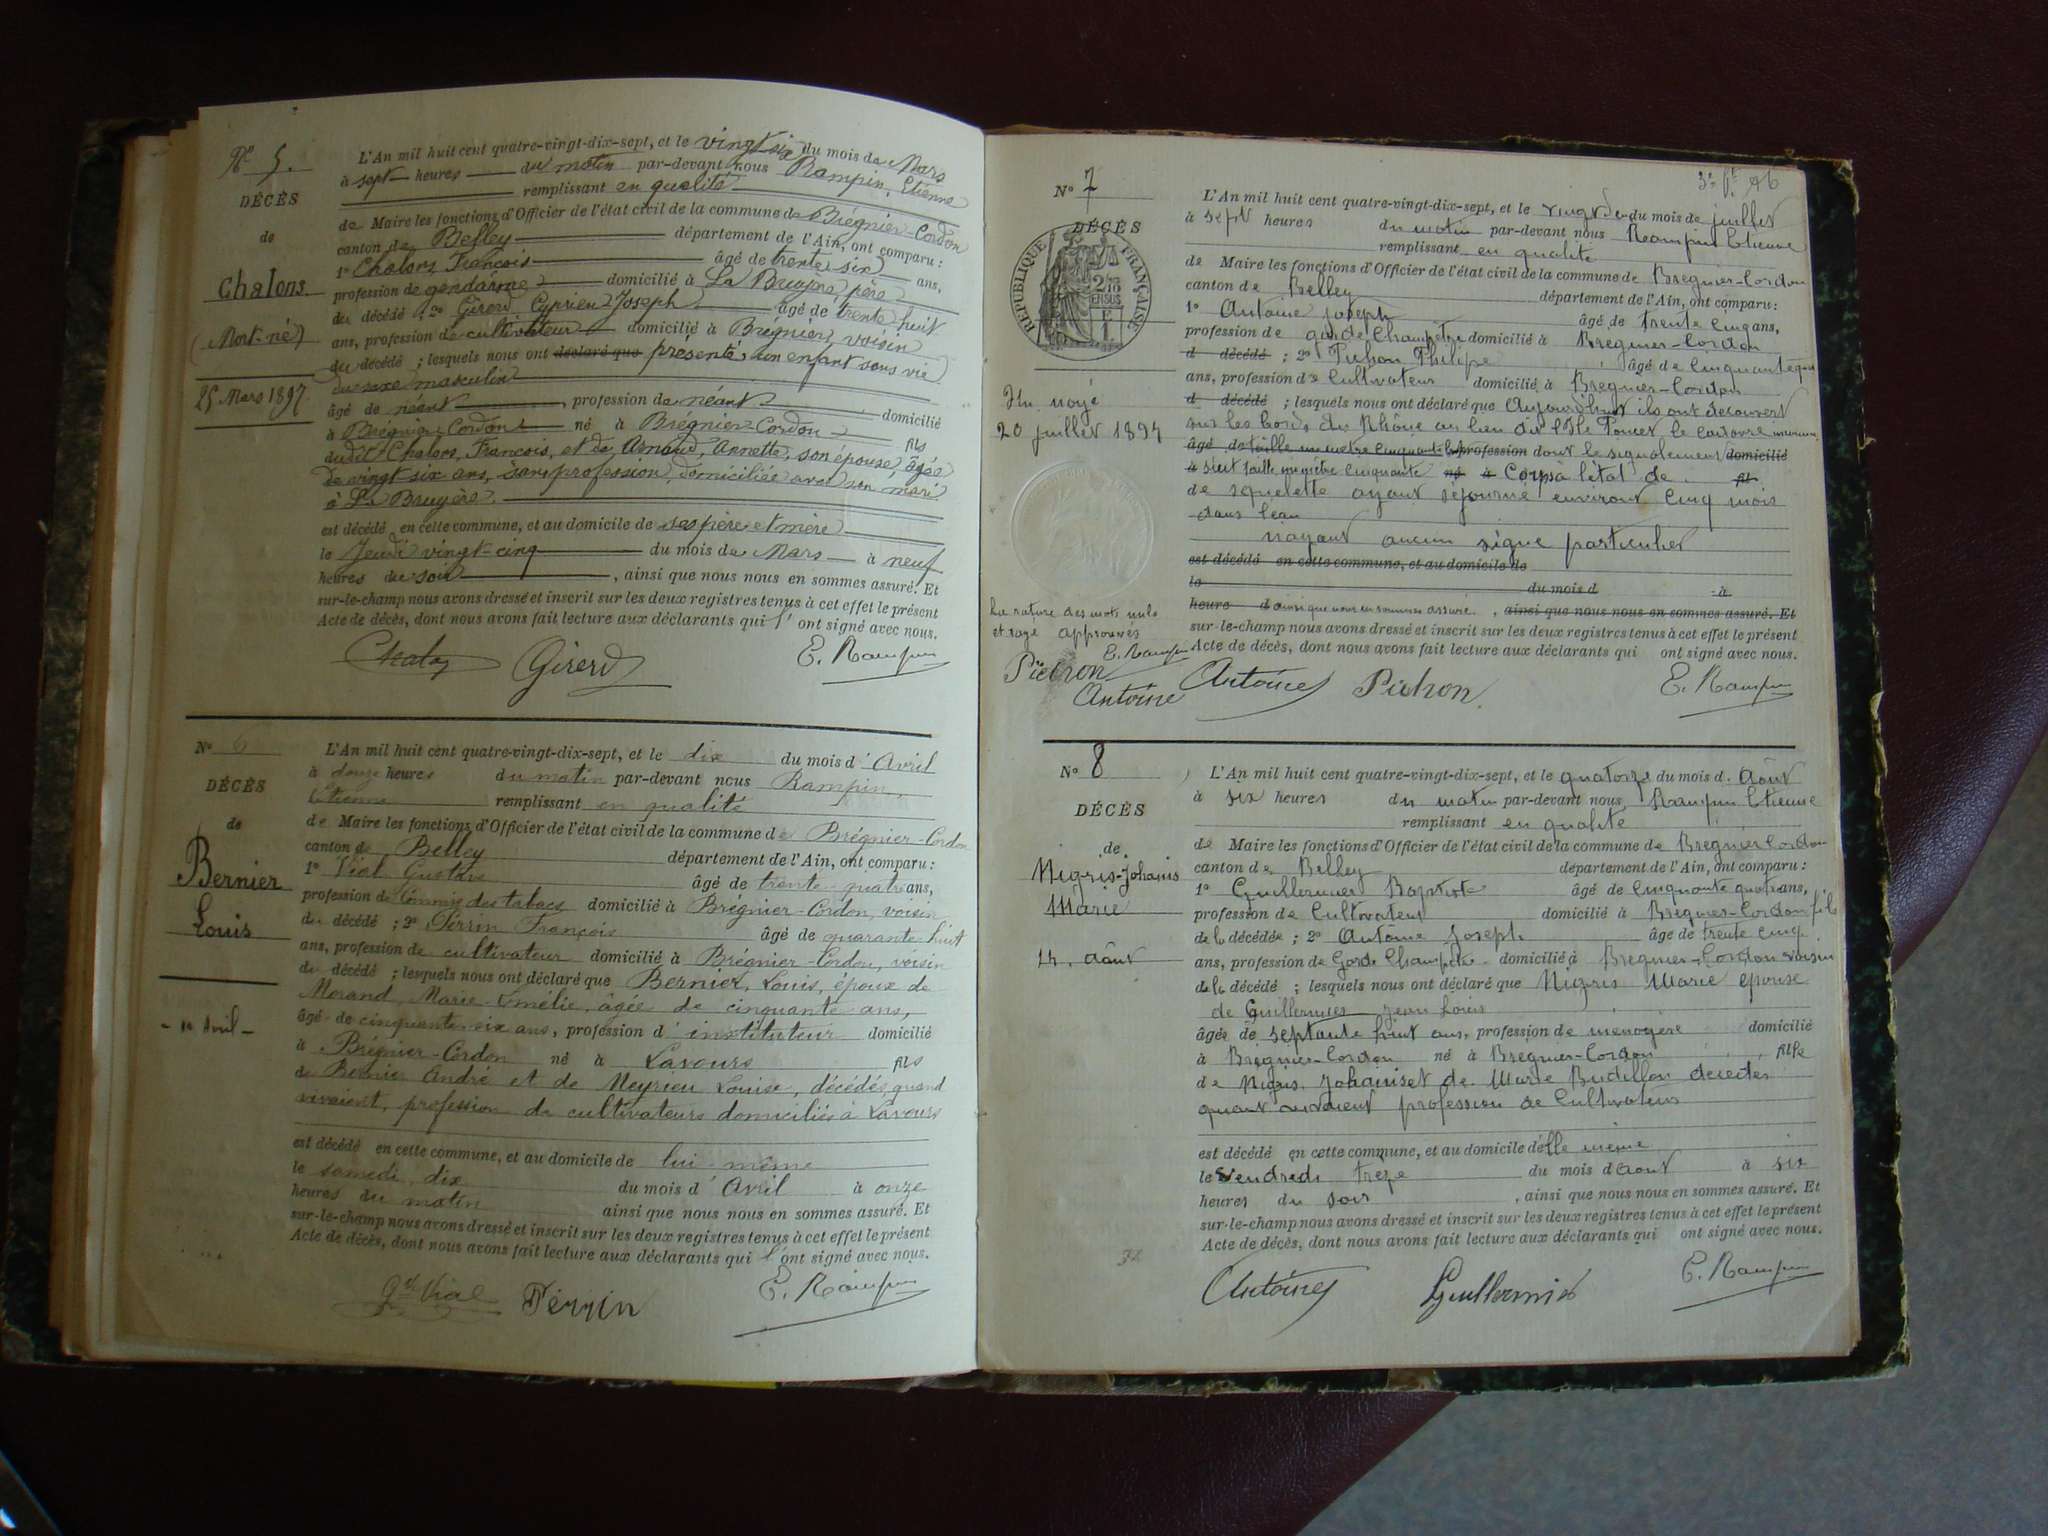 Nº 5.
DÉCÈS
de
Chalons
(Mort-né)
25 Mars 1897
L'An mil huit cent quatre-vingt-dix-sept, et le vingt six du mois de Mars
à sept heures du matin par-devant nous Rampin, Etienne
remplissant en qualité
de Maire les fonctions d'Officier de l'état civil de la commune de Brégnier-Cordon
canton de Belley département de l'Ain, ont comparu :
1º Chalons François âgé de trente six ans,
profession de gendarme domicilié à La Bruyère, père
du décédé ; 2º Girerd Cyprien Joseph âgé de trente huit
ans, profession de cultivateur domicilié à Bregnier, voisin
du décédé ; lesquels nous ont déclaré que présenté un enfant sans vie
du sexe masculin
âgé de néant profession de néant domicilié
à Brégnier Cordon né à Brégnier-Cordon fils
dudit Chalons, François, et de Arnaud, Annette, son épouse, âgée
de vingt-six ans, sans profession, domiciliée avec son mari
à La Bruyère.
est décédé en cette commune, et au domicile de ses père et mère
le Jeudi vingt-cinq du mois de Mars à neuf
heures du soir, ainsi que nous nous en sommes assuré. Et
sur-le-champ nous avons dressé et inscrit sur les deux registres tenus à cet effet le présent
Acte de décès, dont nous avons fait lecture aux déclarants qui l'ont signé avec nous.
Girerd E. Rampin
Nº 6
DÉCÈS
de
Bernier
Louis
- 10 Avril -
L'An mil huit cent quatre-vingt-dix-sept, et le dix du mois d'Avril
à douze heures du matin par-devant nous Rampin,
Etienne remplissant en qualité
de Maire les fonctions d'Officier de l'état civil de la commune de Brégnier-Cordon
canton de Belley département de l'Ain, ont comparu :
1º Vial Gustave âgé de trente-quatre ans,
profession de Commis des tabacs domicilié à Brégnier-Cordon, voisin
du décédé ; 2º Perrin François âgé de quarante huit
ans, profession de cultivateur domicilié à Brégnier-Cordon, voisin
du décédé ; lesquels nous ont déclaré que Bernier, Louis, époux de
Morand, Marie-Emélie, âgée de cinquante ans,
âgé de cinquante six ans, profession d'instituteur domicilié
à Brégnier-Cordon né à Lavours fils
de Bernier André et de Meyrieu Louise, décédés, quand
vivaient, profession de cultivateurs domiciliés à Lavours
est décédé en cette commune, et au domicile de lui-même
le samedi dix du mois d'Avril à onze
heures du matin ainsi que nous nous en sommes assuré. Et
sur-le-champ nous avons dressé et inscrit sur les deux registres tenus à cet effet le présent
Acte de décès, dont nous avons fait lecture aux déclarants qui l'ont signé avec nous.
Vial Perrin E. Rampin
Nº 7
DÉCÈS
RÉPUBLIQUE FRANÇAISE
2/10 EN SUS
Un noyé
20 juillet 1897
La rature des mots nuls
et rayé approuvés
E. Rampin
Pichon
Antoine
L'An mil huit cent quatre-vingt-dix-sept, et le du mois de juillet
à sept heures du matin par-devant nous Rampin Etienne
remplissant en qualité
de Maire les fonctions d'Officier de l'état civil de la commune de Bregnier-Cordon
canton de Belley département de l'Ain, ont comparu :
1º Antoine Joseph âgé de trente cinq ans,
profession de garde Champêtre domicilié à Bregnier-Cordon
d décédé ; 2º Pichon Philipe âgé de cinquante
ans, profession de Cultivateur domicilié à Bregnier-Cordon
d décédé ; lesquels nous ont déclaré que Aujourd'hui ils ont découvert
sur les bords du Rhône au lieu dit l'Ile Poncet le cadavre
âgé de taille un metre cinquante profession dont le signalement domicilié
à suit taille un mètre cinquante né à Corps à l'état de fil
de squelette ayant séjourné environt cinq mois
dans l'eau
n'ayant aucun signe particulier
est décédé en cette commune, et au domicile de
le du mois d à
heure d ainsi que nous en sommes assuré, ainsi que nous nous en sommes assuré. Et
sur-le-champ nous avons dressé et inscrit sur les deux registres tenus à cet effet le présent
Acte de décès, dont nous avons fait lecture aux déclarants qui ont signé avec nous.
Antoine Pichon E. Rampin
Nº 8
DÉCÈS
de
Nigris-Johanis
Marie
14 août
L'An mil huit cent quatre-vingt-dix-sept, et le quatorze du mois d'Août
à six heures du matin par-devant nous Rampin Etienne
remplissant en qualité
de Maire les fonctions d'Officier de l'état civil de la commune de Bregnier Cordon
canton de Belley département de l'Ain, ont comparu :
1º Guillermier Baptiste âgé de Cinquante quatre ans,
profession de Cultivateur domicilié à Bregnier-Cordon fils
de la décédée ; 2º Antoine Joseph âgé de trente cinq
ans, profession de Garde Champêtre domicilié à Bregnier-Cordon voisin
de la décédé ; lesquels nous ont déclaré que Nigris Marie epouse
de Guillermier Jean Louis
âgée de septante huit ans, profession de menagère domicilié
à Bregnier-Cordon né à Bregnier-Cordon fille
de Nigris Johanis et de Marie Budillon décédés
quant vivaient profession de Cultivateurs
est décédé en cette commune, et au domicile d'elle même
le Vendredi treze du mois d'aout à six
heures du soir, ainsi que nous nous en sommes assuré. Et
sur-le-champ nous avons dressé et inscrit sur les deux registres tenus à cet effet le présent
Acte de décès, dont nous avons fait lecture aux déclarants qui ont signé avec nous.
Antoine Guillermier E. Rampin